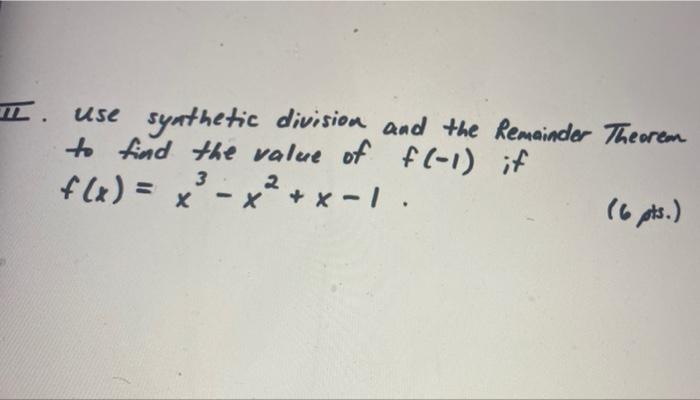 II. use synthetic division and the Remainder Theorem
to find the value of f(-1) if
f(x) = x³ - x² + x - 1 . (6 pts.)